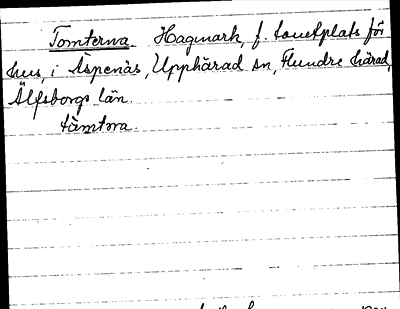 Tomterna. Hagmark, f. tomtplats för
hus, i Åspenäs, Upphärad sn, Flundre härad,
Älfsborgs län.
tåmtəra.